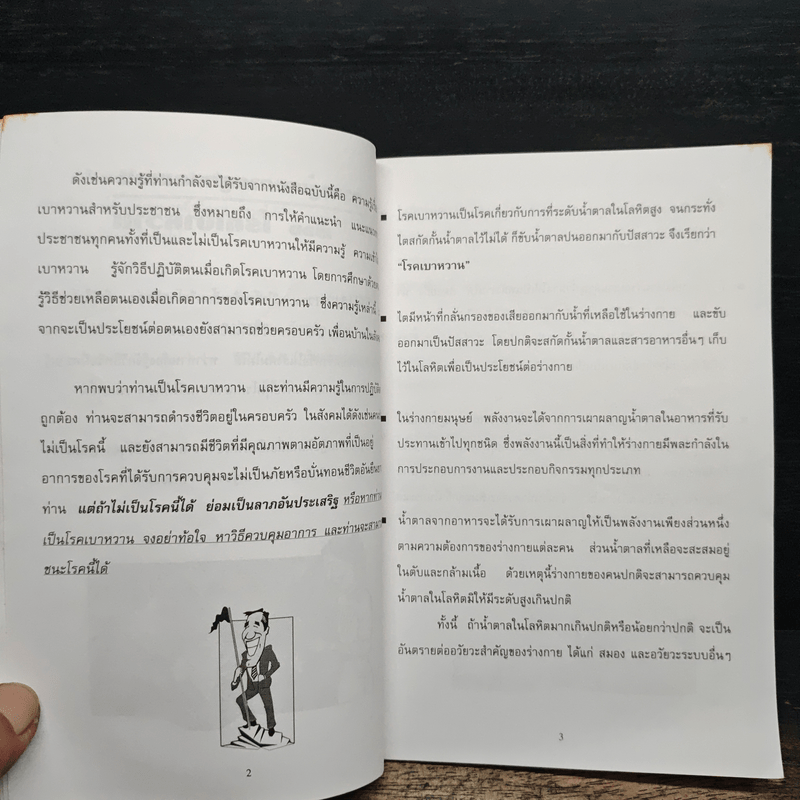 ดังเช่นความรู้ที่ท่านกำลังจะได้รับจากหนังสือฉบับนี้คือ ความรู้
เบาหวานสำหรับประชาชน ซึ่งหมายถึง การให้คำแนะนำ
ประชาชนทุกคนทั้งที่เป็นและไม่เป็นโรคเบาหวานให้มีความรู้
เบาหวาน รู้จักวิธีปฏิบัติตนเมื่อเกิดโรคเบาหวาน โดยการศึกษา
รู้วิธีช่วยเหลือตนเองเมื่อเกิดอาการของโรคเบาหวาน ซึ่งความรู้เหล่านี้
จากจะเป็นประโยชน์ต่อตนเองยังสามารถช่วยครอบครัว เพื่อนบ้าน
หากพบว่าท่านเป็นโรคเบาหวาน และท่านมีความรู้ในการปฏิบัติ
ถูกต้อง ท่านจะสามารถดำรงชีวิตอยู่ในครอบครัว ในสังคมได้ดังเช่น
ไม่เป็นโรคนี้ และยังสามารถมีชีวิตที่มีคุณภาพตามอัตภาพที่เป็นอยู่
อาการของโรคที่ได้รับการควบคุมจะไม่เป็นภัยหรือบั่นทอนชีวิต
ท่าน แต่ถ้าไม่เป็นโรคนี้ได้ ย่อมเป็นลาภอันประเสริฐ หรือหาก
เป็นโรคเบาหวาน จงอย่าท้อใจ หาวิธีควบคุมอาการ และท่านจะ
ชนะโรคนี้ได้
2
โรคเบาหวานเป็นโรคเกี่ยวกับการที่ระดับน้ำตาลในโลหิตสูง จนกระทั่ง
ไตสกัดกั้นน้ำตาลไว้ไม่ได้ ก็ขับน้ำตาลปนออกมากับปัสสาวะ จึงเรียกว่า
“โรคเบาหวาน”
ไตมีหน้าที่กลั่นกรองของเสียออกมากับน้ำที่เหลือใช้ในร่างกาย และขับ
ออกมาเป็นปัสสาวะ โดยปกติจะสกัดกั้นน้ำตาลและสารอาหารอื่นๆ เก็บ
ไว้ในโลหิตเพื่อเป็นประโยชน์ต่อร่างกาย
ในร่างกายมนุษย์ พลังงานจะได้จากการเผาผลาญน้ำตาลในอาหารที่รับ
ประทานเข้าไปทุกชนิด ซึ่งพลังงานนี้เป็นสิ่งที่ทำให้ร่างกายมีพละกำลังใน
การประกอบการงานและประกอบกิจกรรมทุกประเภท
น้ำตาลจากอาหารจะได้รับการเผาผลาญให้เป็นพลังงานเพียงส่วนหนึ่ง
ตามความต้องการของร่างกายแต่ละคน ส่วนน้ำตาลที่เหลือจะสะสมอยู่
ในตับและกล้ามเนื้อ ด้วยเหตุนี้ร่างกายของคนปกติจะสามารถควบคุม
น้ำตาลในโลหิตมิให้มีระดับสูงเกินปกติ
ทั้งนี้ ถ้าน้ำตาลในโลหิตมากเกินปกติหรือน้อยกว่าปกติ จะเป็น
อันตรายต่ออวัยวะสำคัญของร่างกาย ได้แก่ สมอง และอวัยวะระบบอื่นๆ
3